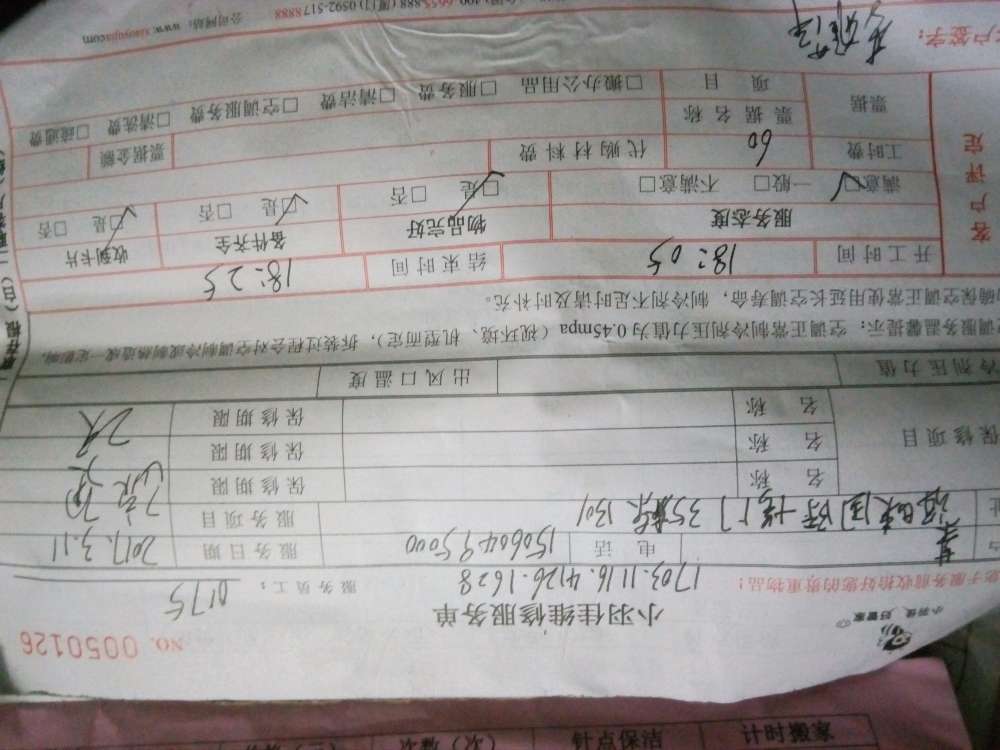 小羽佳 好管家
小羽佳维修服务单
NO. 0050126
您于服务前收拾好您的贵重物品!
1703.1116.4126.1628
服务员工: 0175
电话 15060495000
服务日期 2017.3.11
35 1301
服务项目
保修项目
名称
保修期限
名称
保修期限
名称
保修期限
冷剂压力值
出风口温度
调服务温馨提示: 空调正常制冷剂压力值为0.45mpa (视环境、机型而定), 拆装过程会对空调制冷或制热造成一定影响,
确保空调正常使用延长空调寿命, 制冷剂不足时请及时补充。
开工时间 18:05
结束时间 18:25
客户评定
服务态度
物品完好
备件齐全
收到卡片
满意□ 一般□ 不满意□
□是 □否
□是 □否
□是 □否
工时费 60
代购材料费
票据金额
票据
票据名称
项目
□搬办公用品 □服务费 □清洁费 □空调服务费 □清洗费 □疏通费
客户签字:
公司网站: www.xiaoyujia.com
计时搬家
针点保洁